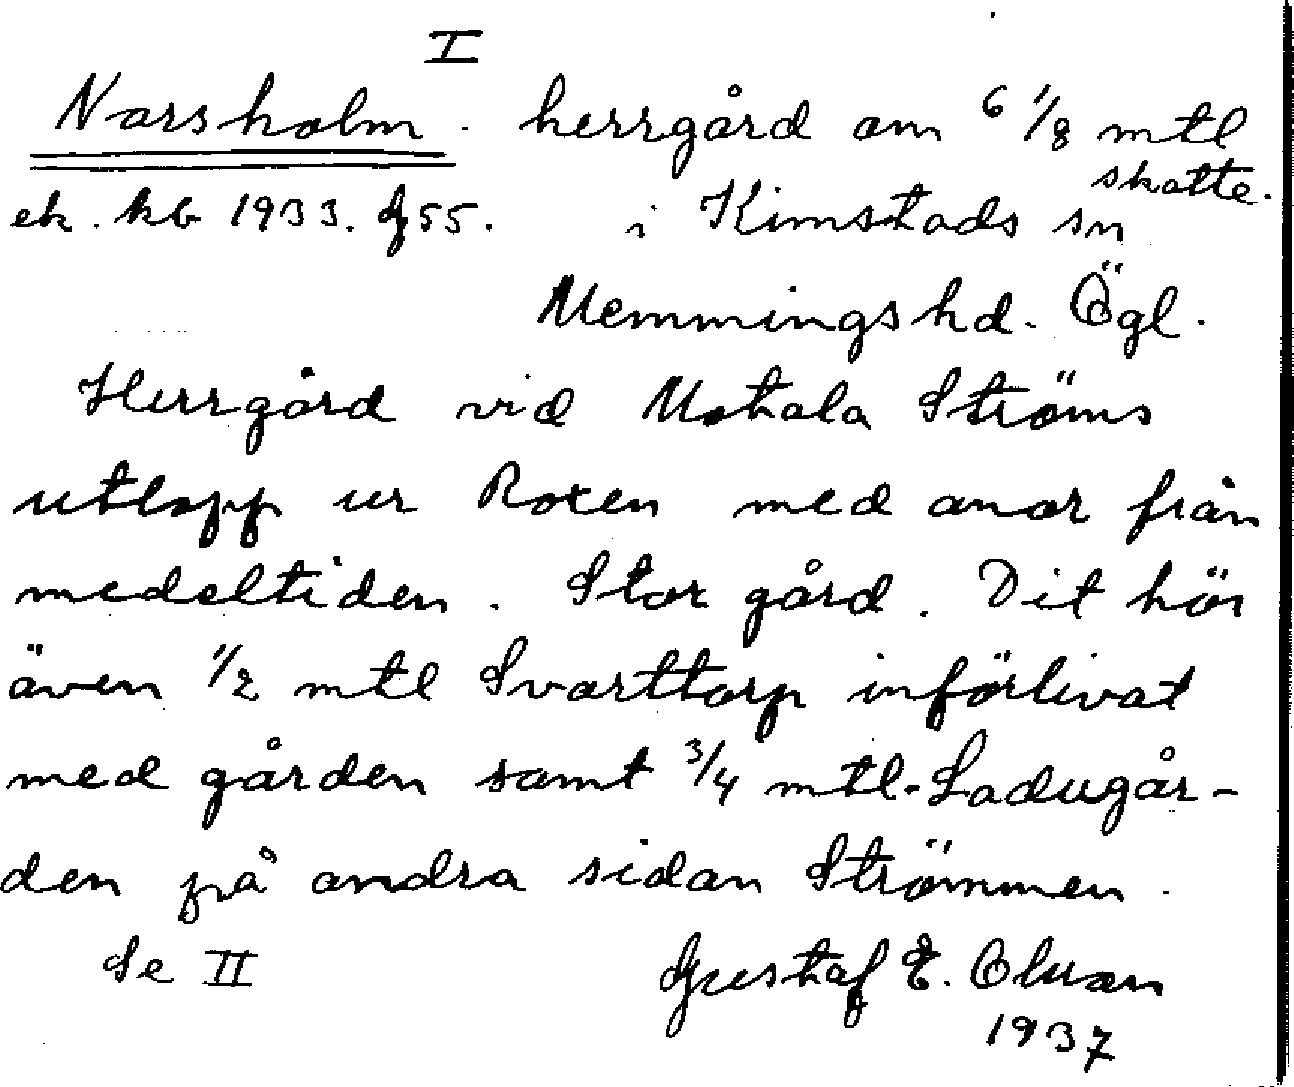 I
Norsholm. herrgård om 6 1/8 mtl
skatte.
ek. kb 1933. G55. i Kimstads sn
Memmingshd. Ögl.
Herrgård vid Motala Ströms
utlopp ur Roxen med anor från
medeltiden. Stor gård. Dit hör
även 1/2 mtl Svarttorp införlivat
med gården samt 3/4 mtl. Ladugår-
den på andra sidan Strömmen.
Se II Gustaf E.
1937